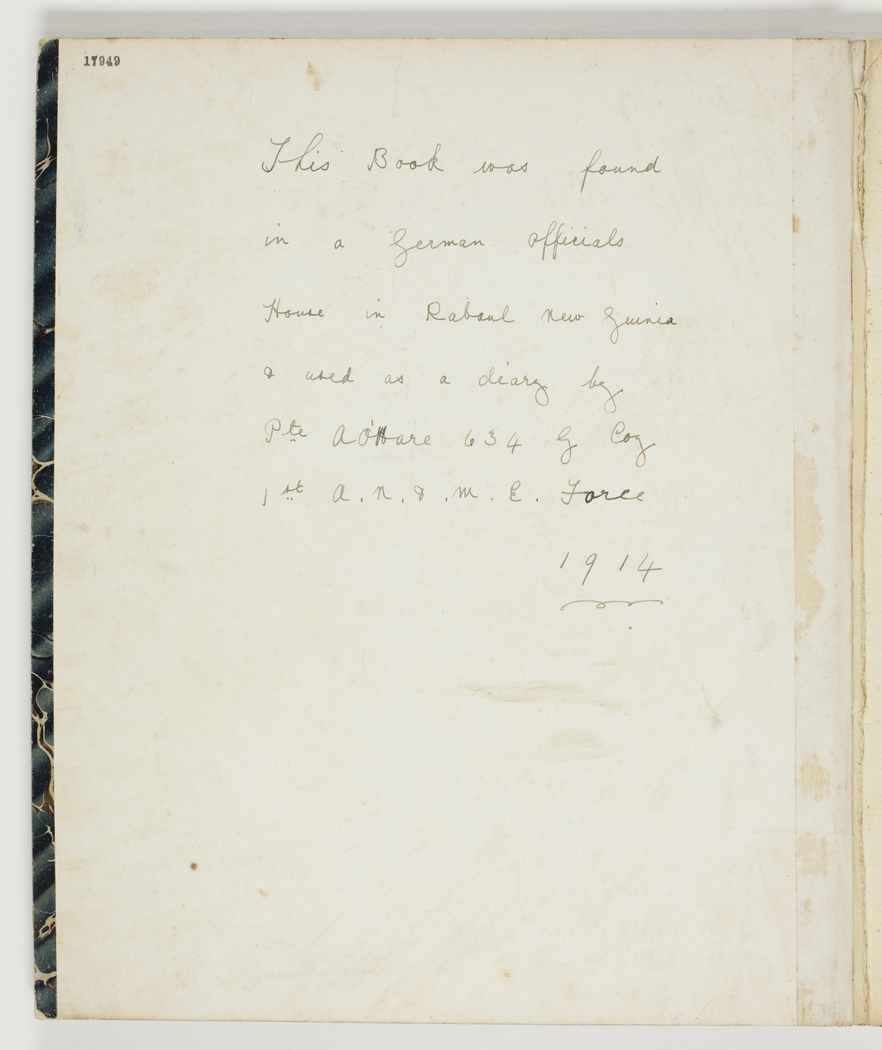 17949
This Book was found
in a German officials
House in Rabaul New Guinia
& used as a diary by
Pte A O'Hare 634 G Coy
1st A. N. & . M. E. Force
1914